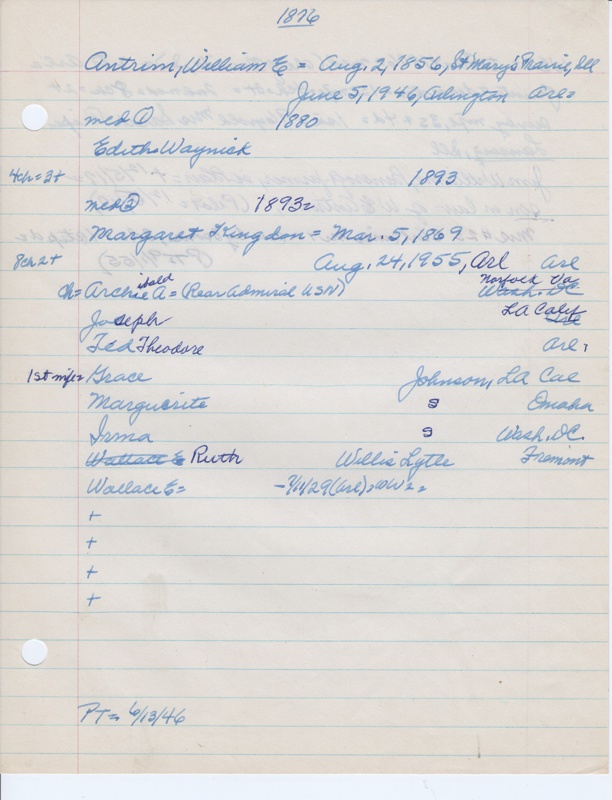 1876
Antrim, William E = Aug. 2, 1856, St Mary's Prairie, Ill
June 5, 1946, Arlington are=
med ① 1880
Edith Waynick
4ch=3+ 1893
med ② 1893=
Margaret Kingdon = Mar. 5, 1869
8ch 2+ Aug. 24, 1955, Arl are
Norfolk Va
Ch= Archie ibald A = (Rear Admiral USN) Wash. DC
Joseph LA Calif
Ted Theodore are,
1st wife= Grace Johnson, LA Cal
Marguerite s Omaha
Irma s Wash. D.C.
Wallace E Ruth Willis Lytle Fremont
Wallace E=
+
+
+
+
PT= 6/13/46